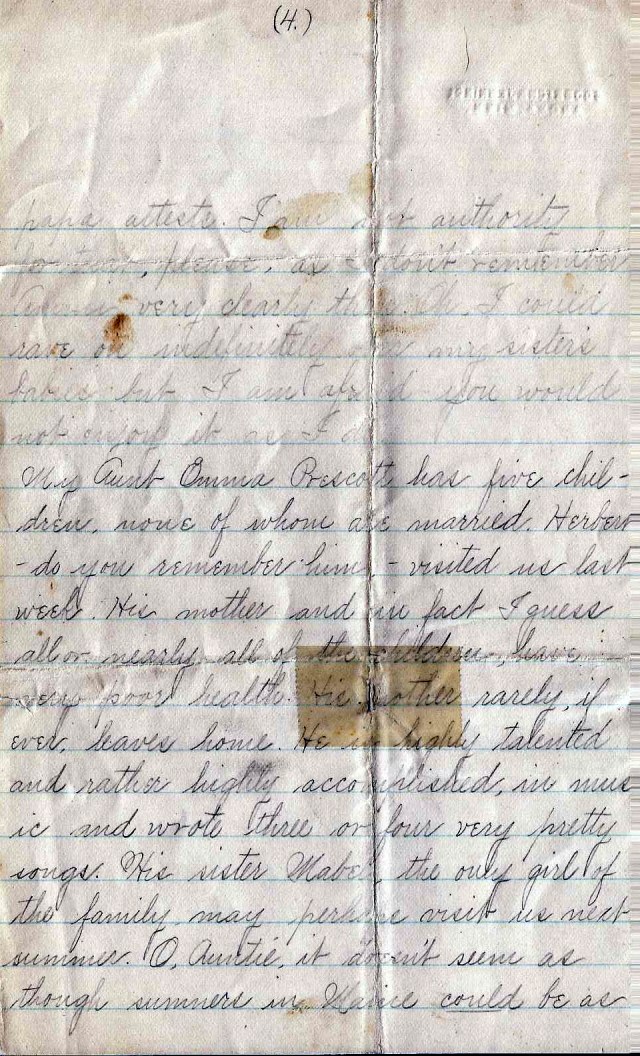 (4.)
papa attests. I am not authority
for that, please, as I don't remember
very clearly then. Oh, I could
rave on indefinitely my sister's
babies but I am afraid you would
not enjoy it as I do.
My Aunt Emma Prescott has five chil-
dren, none of whom are married. Herbert
- do you remember him, - visited us last
week. His mother and in fact I guess
all or nearly all of the children, have
very poor health. His mother rarely, if
ever, leaves home. He is highly talented
and rather highly accomplished, in mus
ic and wrote three or four very pretty
songs. His sister Mabel, the only girl of
the family may perhaps visit us next
summer. O, Auntie, it doesn't seem as
though summers in Maine could be as